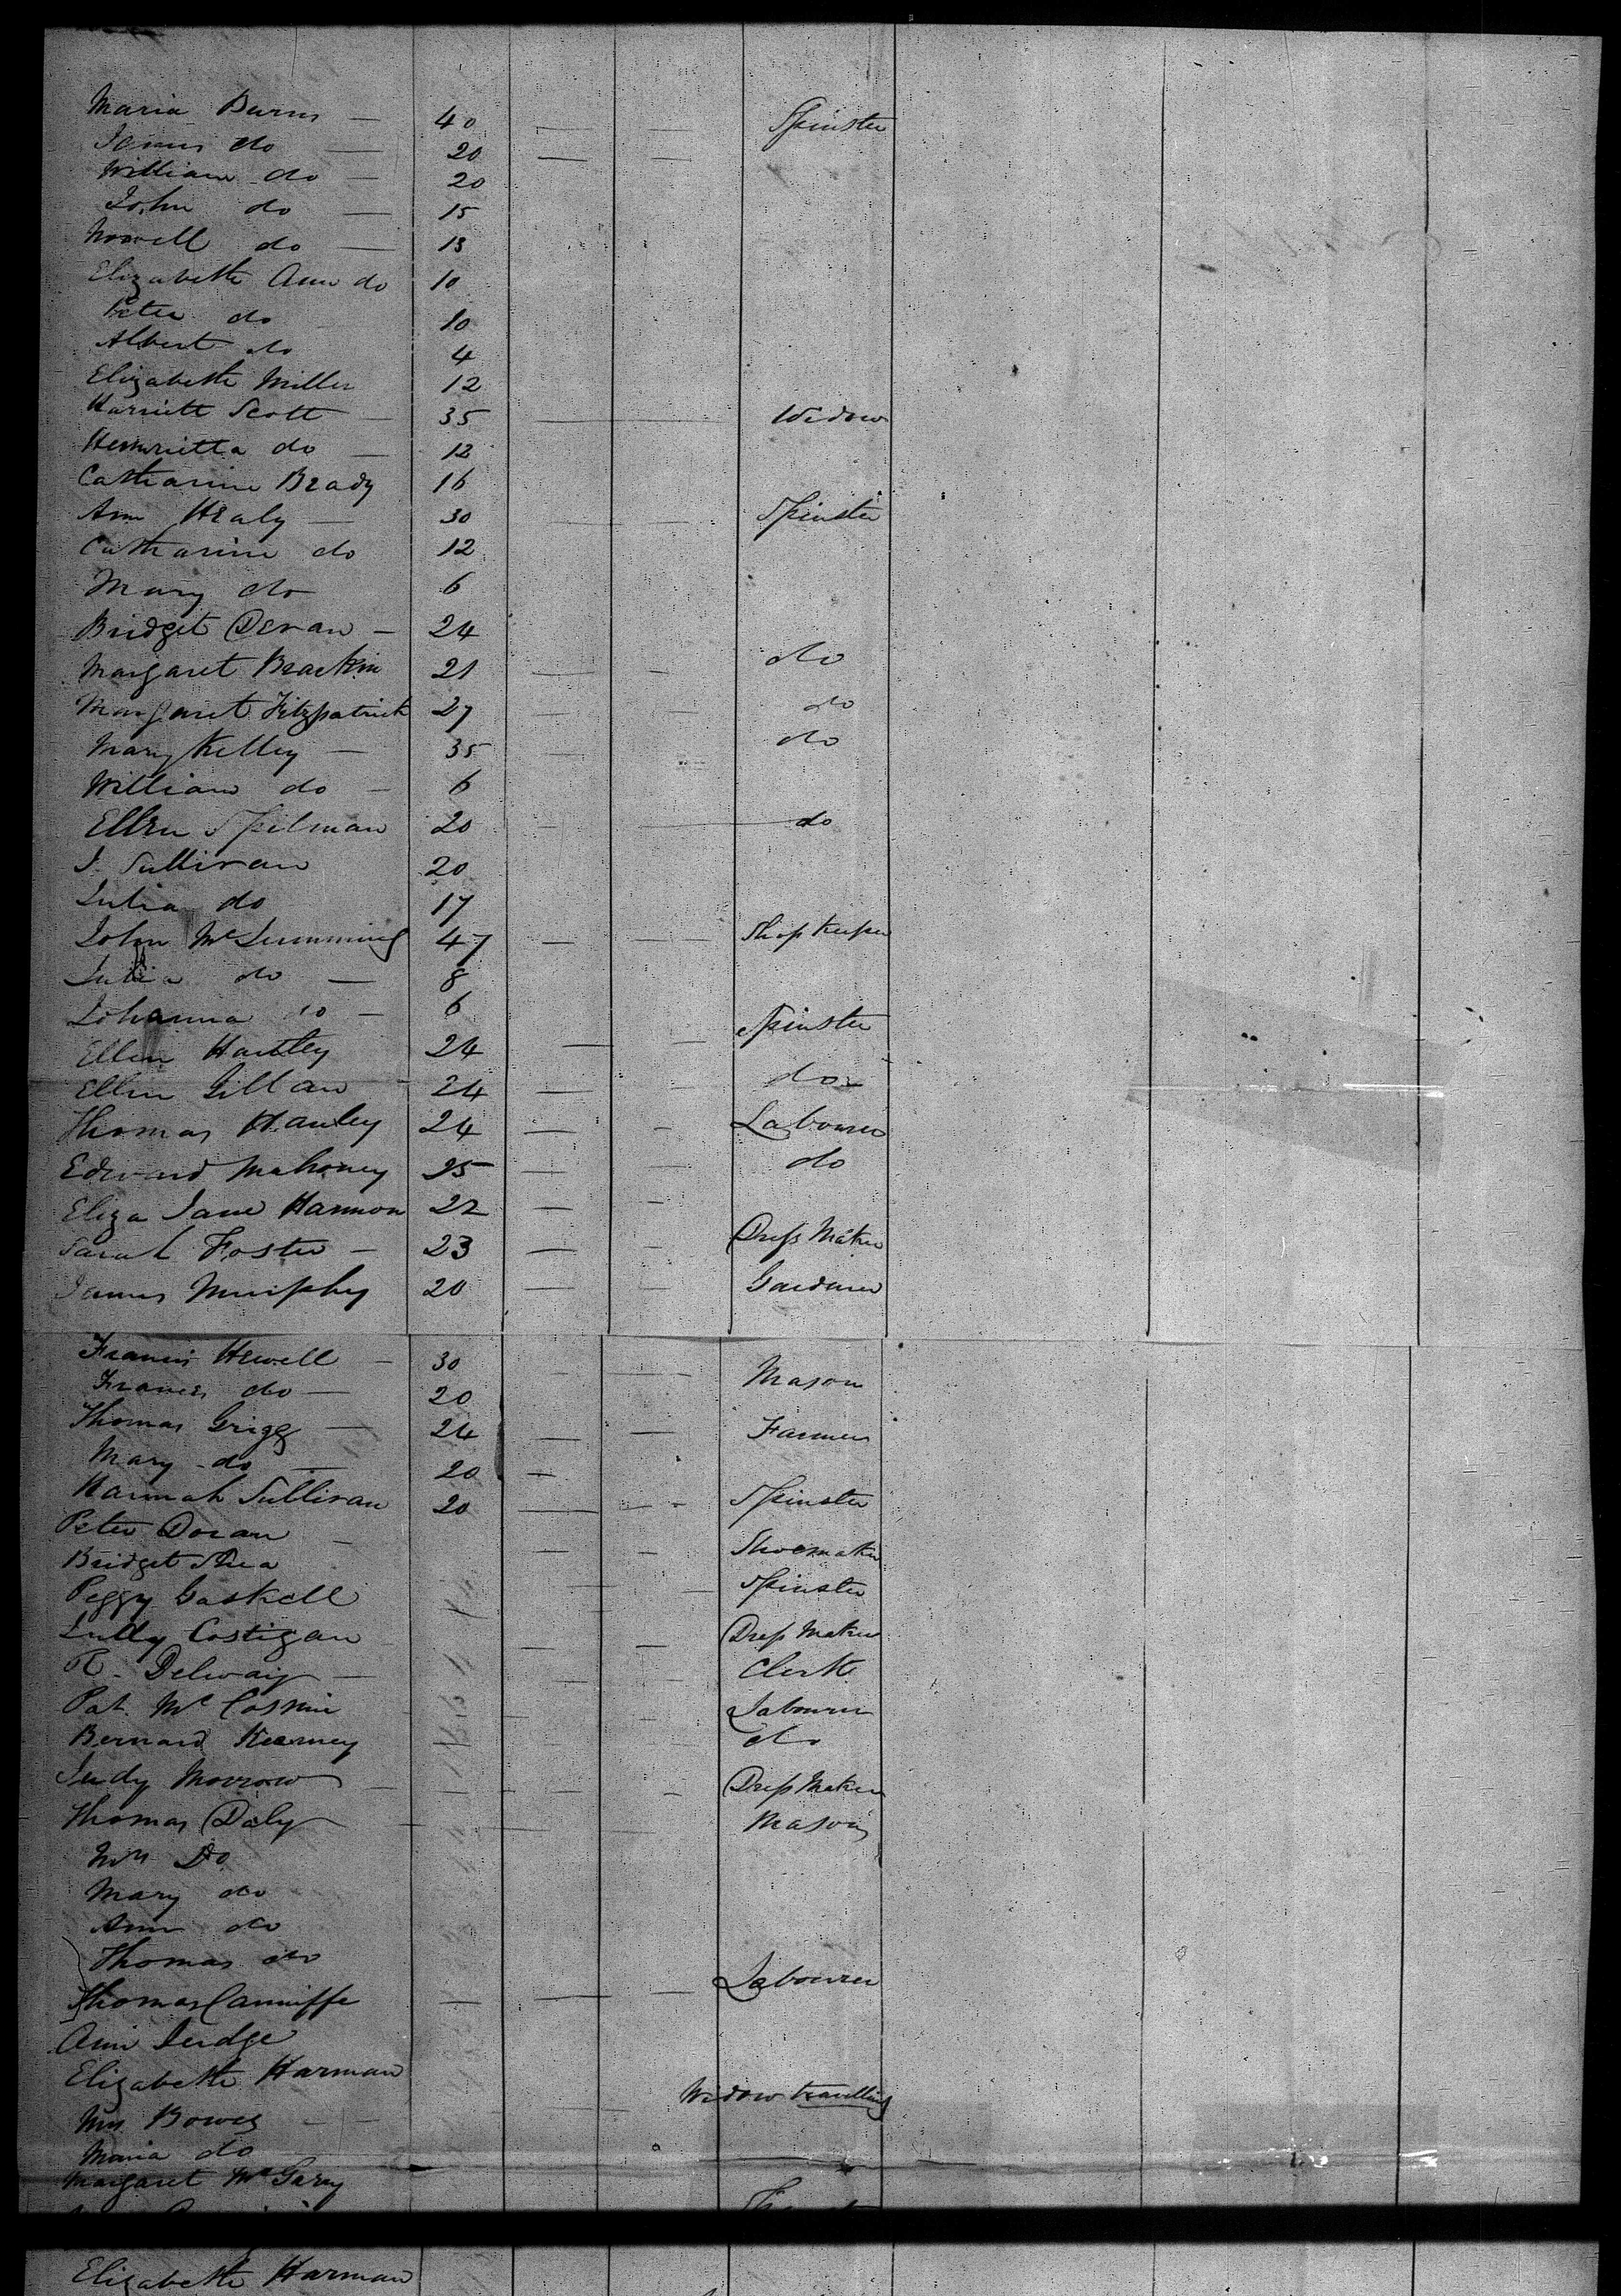 Maria Burns — 40 — — Spinster
James do — 20 — —
William do — 20
John do — 15
Nowell do — 13
Elizabeth Ann do 10
Peter do 10
Albert do 4
Elizabeth Miller 12
Harriett Scott — 35 — Widow
Hennrietta do — 12
Catharine Brady 16
Ann Healy — 30 — — Spinster
Catharine do 12
Mary do 6
Bridget Doran — 24
Margaret Brackin 21 — — do
Margaret Fitzpatrick 27 — — do
Mary Kelley — 35 — — do
William do — 6
Ellen Spilman 20 — — do
J. Sullivan 20
Julia do 17
John Mc 47 — — Shop Keeper
Julia do — 8
Johanna do — 6
Ellen Hartley 24 — — Spinster
Ellen Gillan 24 — — do
Thomas Hanley 24 — — Labourer
Edward Mahoney 25 — — do
Eliza Jane Harmon 22 — —
Sarah Foster — 23 — — Dress Maker
James Murphy 20 — — Gardener
Francis Hewell — 30 — — Mason
Frances do — 20
Thomas Grigg — 24 — — Farmer
Mary do — 20 —
Hannah Sullivan 20 — — Spinster
Peter Doran — — — Shoemaker
Bridget Shea — — Spinster
Peggy Gaskell
Judy Costigan — — Dress Maker
R. Delvaig — — — Clerk
Pat. Mc — — Labourer
Bernard Kearney — — — do
Judy Morrow — — — Dress Maker
Thomas Daly — — — Mason
Mrs Do
Mary do
Ann do
Thomas do
Thomas Canniffe — — — Labourer
Ann Judge
Elizabeth Harman
Mrs Bowes — — — Widow travelling
Maria do
Margaret McGarry
Elizabeth Harman